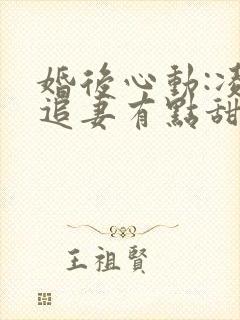 婚後心動:凌
追妻有點甜
王祖賢